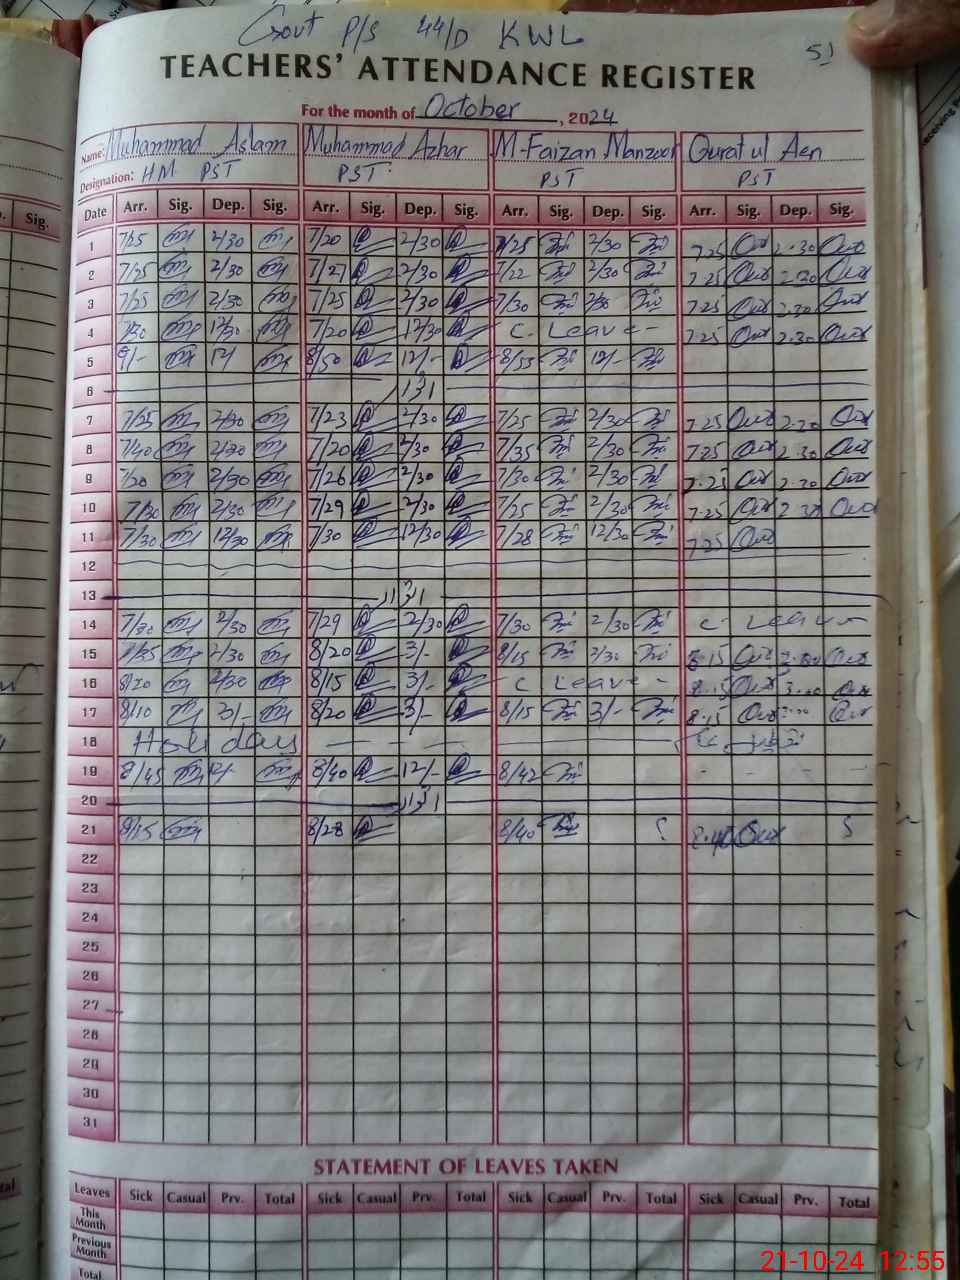 Govt P/S 44/D KWL
51
TEACHERS' ATTENDANCE REGISTER
For the month of October, 2024
Name: Muhammad Aslam Muhammad Azhar M. Faizan Manzoor Qurat ul Aen
Designation: HM PST PST PST PST
Date Arr. Sig. Dep. Sig. Arr. Sig. Dep. Sig. Arr. Sig. Dep. Sig. Arr. Sig. Dep. Sig.
1 7/25 2/30 7/20 2/30 7/25 2/30 7.25 2.30
2 7/25 2/30 7/27 2/30 7/22 2/30 7.25 2.30
3 7/25 2/30 7/25 2/30 7/30 2/30 7.25 2.30
4 7/30 12/30 7/20 12/30 C. Leave - 7.25 2.30
5 9/- 12/ 8/50 12/- 8/55 12/-
6 اتوار
7 7/25 2/30 7/23 2/30 7/25 2/30 7.25 2.30
8 7/40 2/30 7/20 2/30 7/35 2/30 7.25 2.30
9 7/20 2/30 7/26 2/30 7/30 2/30 7.25 2.30
10 7/30 2/30 7/29 2/30 7/25 2/30 7.25 2.30
11 7/30 12/30 7/30 12/30 7/28 12/30 7.25
12
13 اتوار
14 7/30 2/30 7/29 2/30 7/30 2/30 C. Leave
15 2/30 8/20 3/- 8/15 2/30 8.15
16 8/20 2/30 8/15 3/- C Leave - 8.15 3.00
17 8/10 3/- 8/20 3/- 8/15 3/- 8.15 3.00
18 Holiday
19 8/45 12/- 8/40 12/- 8/42 - - - -
20 اتوار
21 8/25 8/28 8/40 8.40
22
23
24
25
26
27
28
29
30
31
STATEMENT OF LEAVES TAKEN
Leaves Sick Casual Prv. Total Sick Casual Prv. Total Sick Casual Prv. Total Sick Casual Prv. Total
This Month
Previous Month
Total
21-10-24 12:55